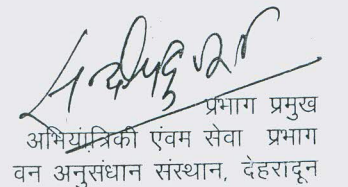 प्रभाग प्रमुख
अभियांत्रिकी एंवम सेवा प्रभाग
वन अनुसंधान संस्थान, देहरादून